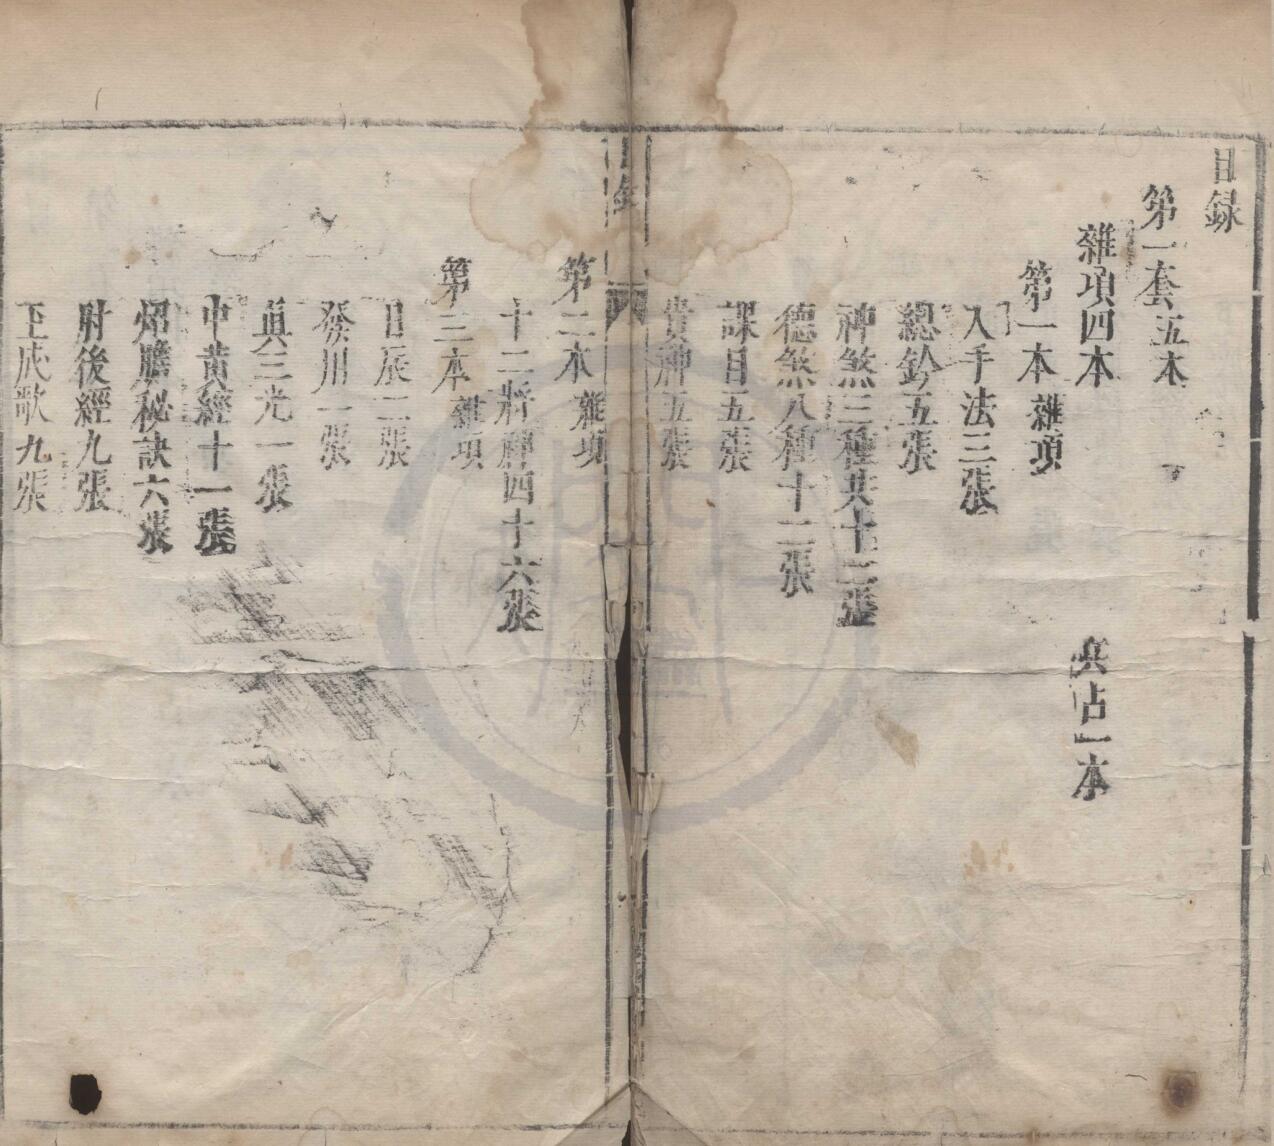 目録
第一套五本
雜項四本 兵占一本
第一本 雜項
入手法三張
總鈐五張
神煞三種共十三張
德煞八種十二張
課目五張
貴神五張
目録
第二本 雜項
十二將神四十六張
第三本 雜項
日辰二張
發用一張
真三光一張
中黄經十一張
照膽秘訣六張
肘後經九張
至成歌九張